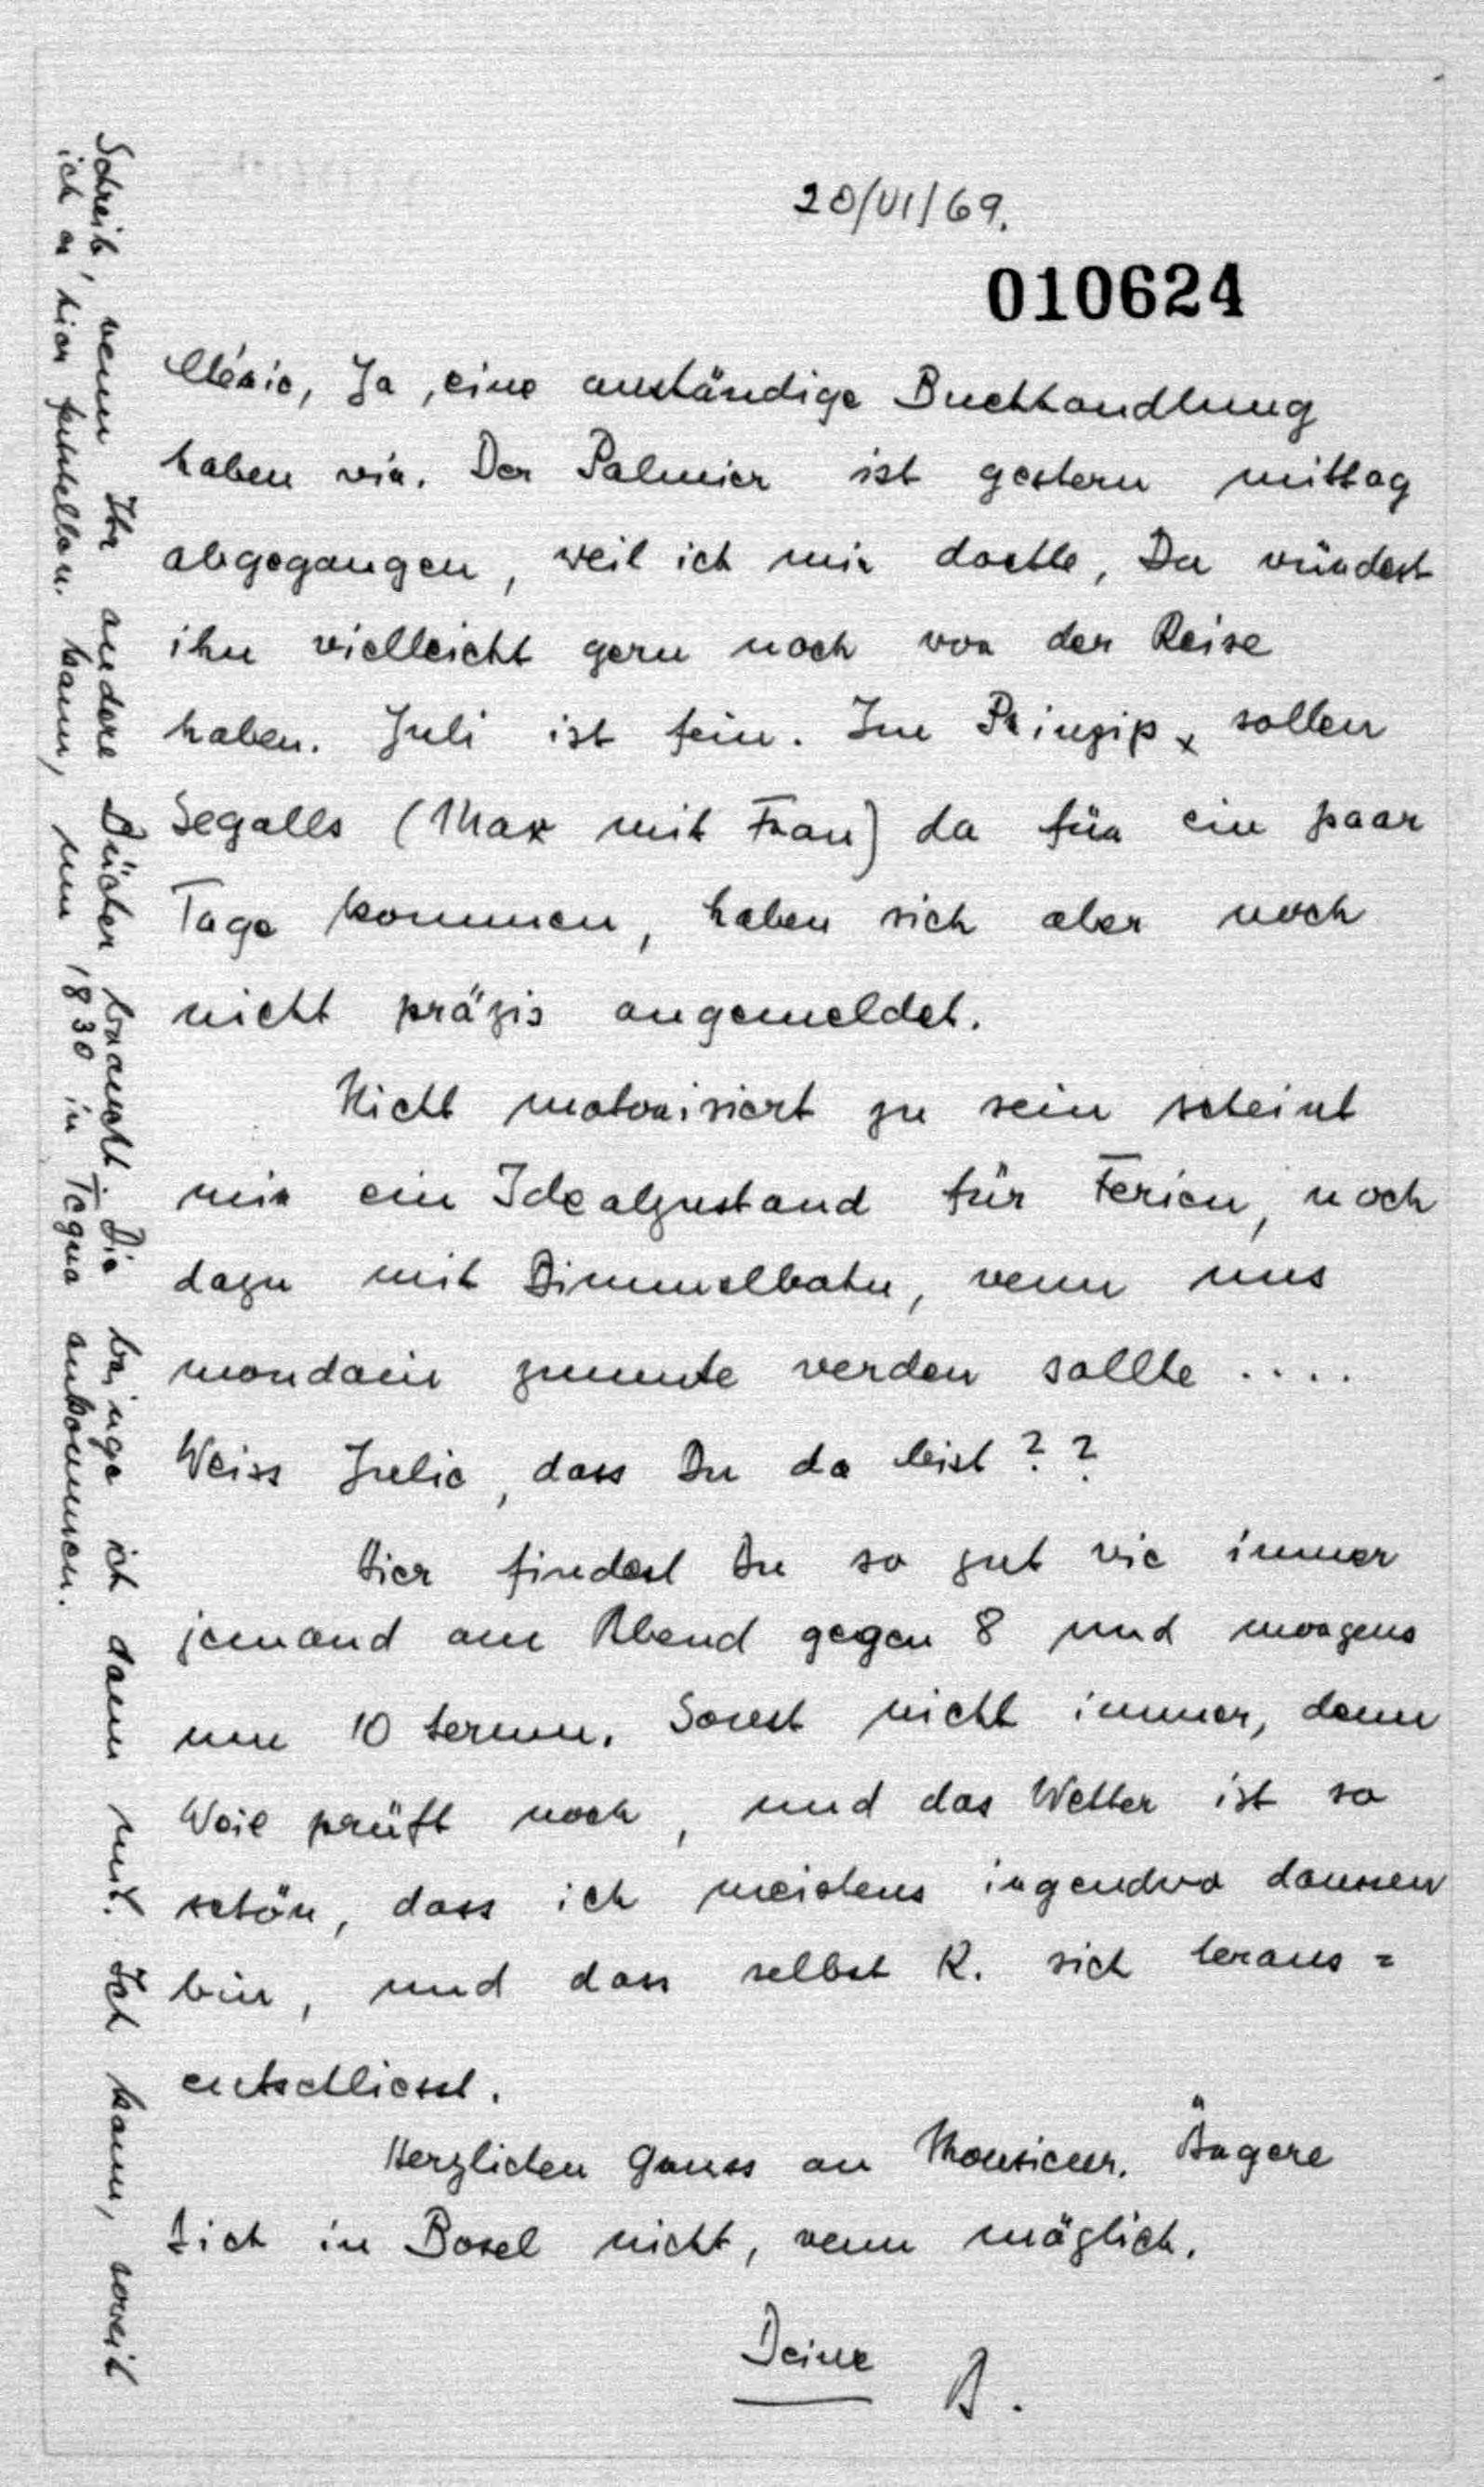 20/VI/69.
010624
Ja, eine anständige Buchhandlung
haben wir. Der Palmier ist gestern mittag
abgegangen, weil ich mir dachte, Du würdest
ihn vielleicht gern noch vor der Reise
haben. Juli ist fein. Im Prinzip sollen
Segalls (Max mit Frau) da für ein paar
Tage kommen, haben sich aber noch
nicht präzis angemeldet.
Nicht motorisiert zu sein scheint
mir ein Idealzustand für Ferien, noch
dazu mit Bimmelbahn, wenn uns
mondain zumute werden sollte ....
Weiss Julie, dass Du da bist??
Hier findest Du so gut wie immer
jemand am Abend gegen 8 und morgens
um 10 herum. Sonst nicht immer, denn
Weil prüft noch, und das Wetter ist so
schön, dass ich meistens irgendwo daussen
bin, und dass selbst R. sich heraus=
entschliesst.
Herzlichen Gruss an Monsieur. Ärgere
Dich in Basel nicht, wenn möglich.
Deine B.
Schreib, wenn Ihr andere Bücher braucht. Die bringe ich dann mit. Ich kann, soweit
ich es hier feststellen kann, um 1830 in Tegna ankommen.